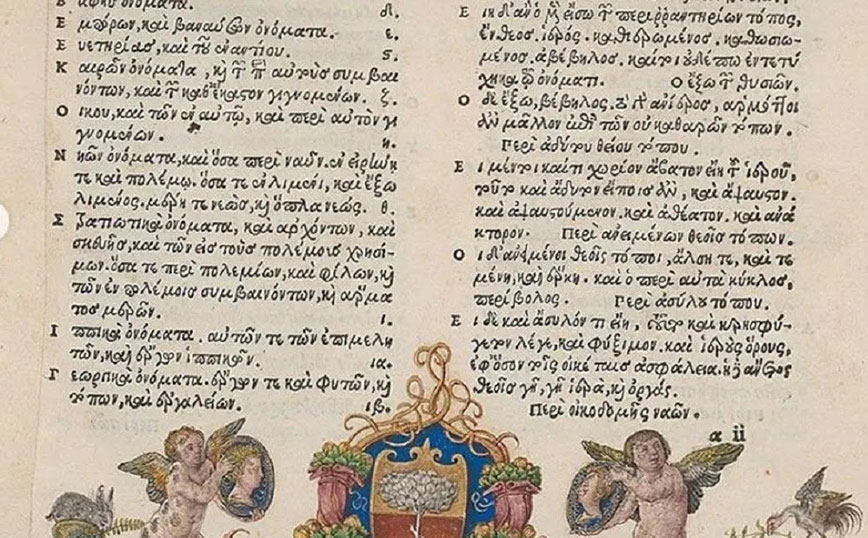 δ.
Ε μπόρων, καὶ βαναύσων ὀνόματα. ε.
Ε υετηρίας, καὶ τοῦ ἐναντίου. ς.
Κ αιρῶν ὀνόματα, καὶ τῶν αὐτοὺς συμβαι
νόντων, καὶ τῶν καθ' ἕκαστον γιγνομένων. ζ.
Ο ἴκου, καὶ τῶν ἐν αὐτῷ, καὶ περὶ αὐτὸν γι
γνομένων. η.
Ν ηῶν ὀνόματα, καὶ ὅσα περὶ ναῦν. ἐν εἰρήνῃ
τε καὶ πολέμῳ. ὅσα τε ἐν λιμένι, καὶ ἔξω
λιμένος. μέρη τε νεώς, καὶ ὅπλα νεώς. θ.
Σ τρατιωτικὰ ὀνόματα, καὶ ἀρχόντων, καὶ
σκευῆς, καὶ τῶν εἰς τοὺς πολέμους χρησί-
μων. ὅσα τε περὶ πολεμίων, καὶ φίλων, καὶ
τῶν ἐν πολέμοις συμβαινόντων, καὶ ἅρμα
τος μερῶν. ι.
Ι ππικὰ ὀνόματα. αὐτῶν τε τῶν ἐπιμελη
τῶν, καὶ ὀργάνων ἱππικῶν. ια.
Γ εωργικὰ ὀνόματα. ὀργάνων τε καὶ φυτῶν, καὶ
τόπων, καὶ ἐργαλείων. ιβ.
Ε ἴη δ' ἂν ὁ μὲν εἴσω τῶν περιρραντηρίων τόπος,
ἔνθεος. ἱερός. καθιερωμένος. καθωσιω-
μένος. ἀβέβηλος. καίτοι οὐδέπω ἐντετύ
χηκα τῷ ὀνόματι. Ὁ ἔξω τῶν θυσιῶν.
Ο δὲ ἔξω, βέβηλος. ἀνίερος, ἁρμόττοι
ἂν μᾶλλον ἐπὶ τῶν οὐ καθαρῶν τόπων.
Περὶ ἀδύτου θείου τόπου.
Ε ἰ μέντοι καί τι χωρίον ἄβατον εἴη τοῦ ἱεροῦ,
τοῦτο καὶ ἄδυτον εἴποις ἄν, καὶ ἄψαυστον.
καὶ ἀψαυστούμενον. καὶ ἀθέατον. καὶ ἀνά
κτορον. Περὶ ἀνειμένων θεοῖς τόπων.
Ο ἱ δ' ἀνειμένοι θεοῖς τόποι, ἄλση τε, καὶ τε
μένη, καὶ ἕρκη. καὶ ὁ περὶ αὐτὰ κύκλος,
περίβολος. Περὶ ἀσύλου τόπου.
Ε ἰ δὲ καὶ ἄσυλόν τι εἴη, τοῦτο καὶ κρησφύ-
γετον λέγε, καὶ φύξιμον. καὶ ἱεροὺς ὅρους,
ἐφ' ὅσον τοῖς οἰκέταις ἀσφάλεια. ἡ
θεοῖς γῆ, γῆ ἱερά, καὶ ὀργάς.
Περὶ οἰκοδομῆς ναῶν.
α ii